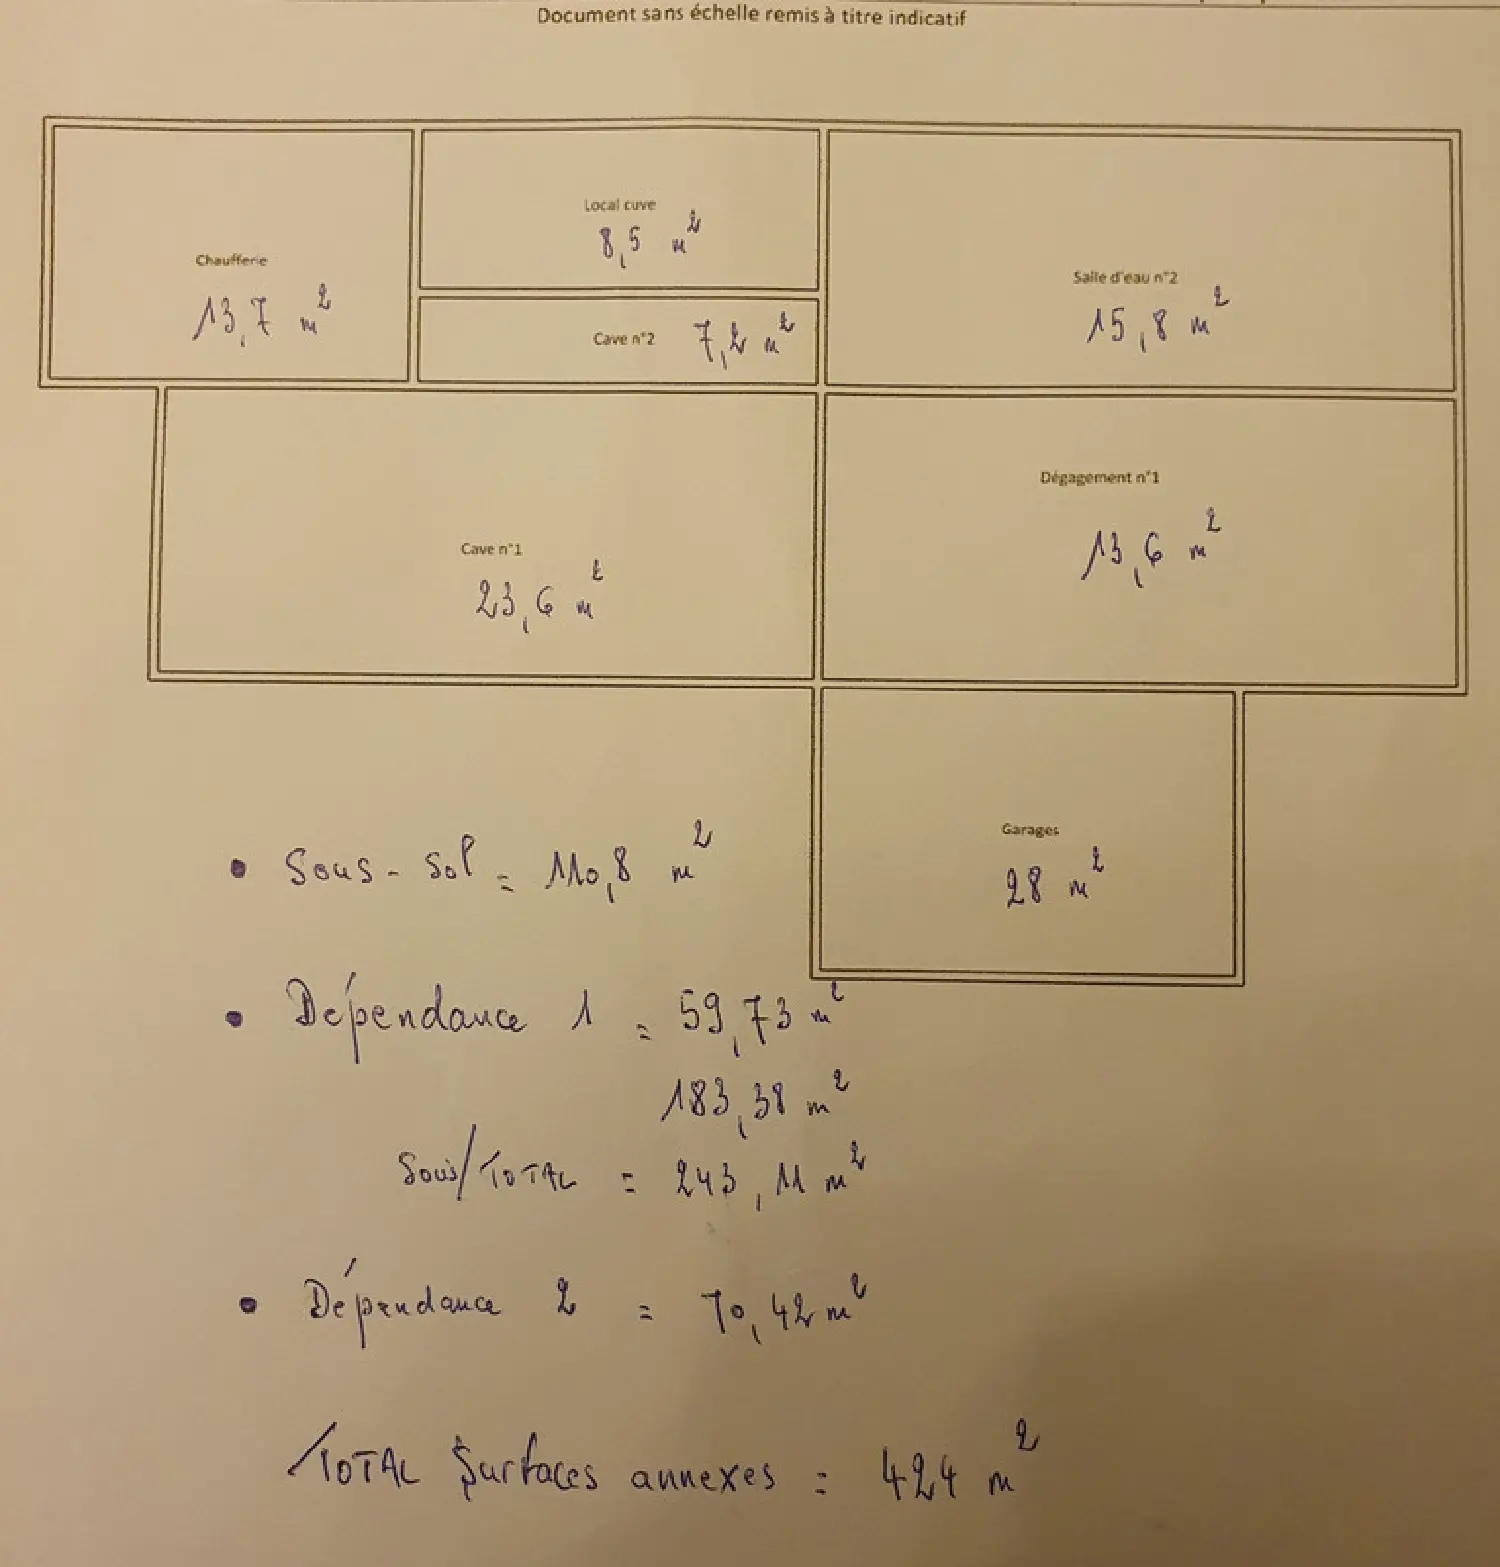 Document sans échelle remis à titre indicatif
Chaufferie
13,7 m²
Local cuve
8,5 m²
Cave n°2 7,2 m²
Salle d'eau n°2
15,8 m²
Cave n°1
23,6 m²
Dégagement n°1
13,6 m²
Garages
28 m²
• Sous-sol = 110,8 m²
• Dépendance 1 = 59,73 m²
183,38 m²
Sous/TOTAL = 243,11 m²
• Dépendance 2 = 70,42 m²
TOTAL Surfaces annexes = 424 m²